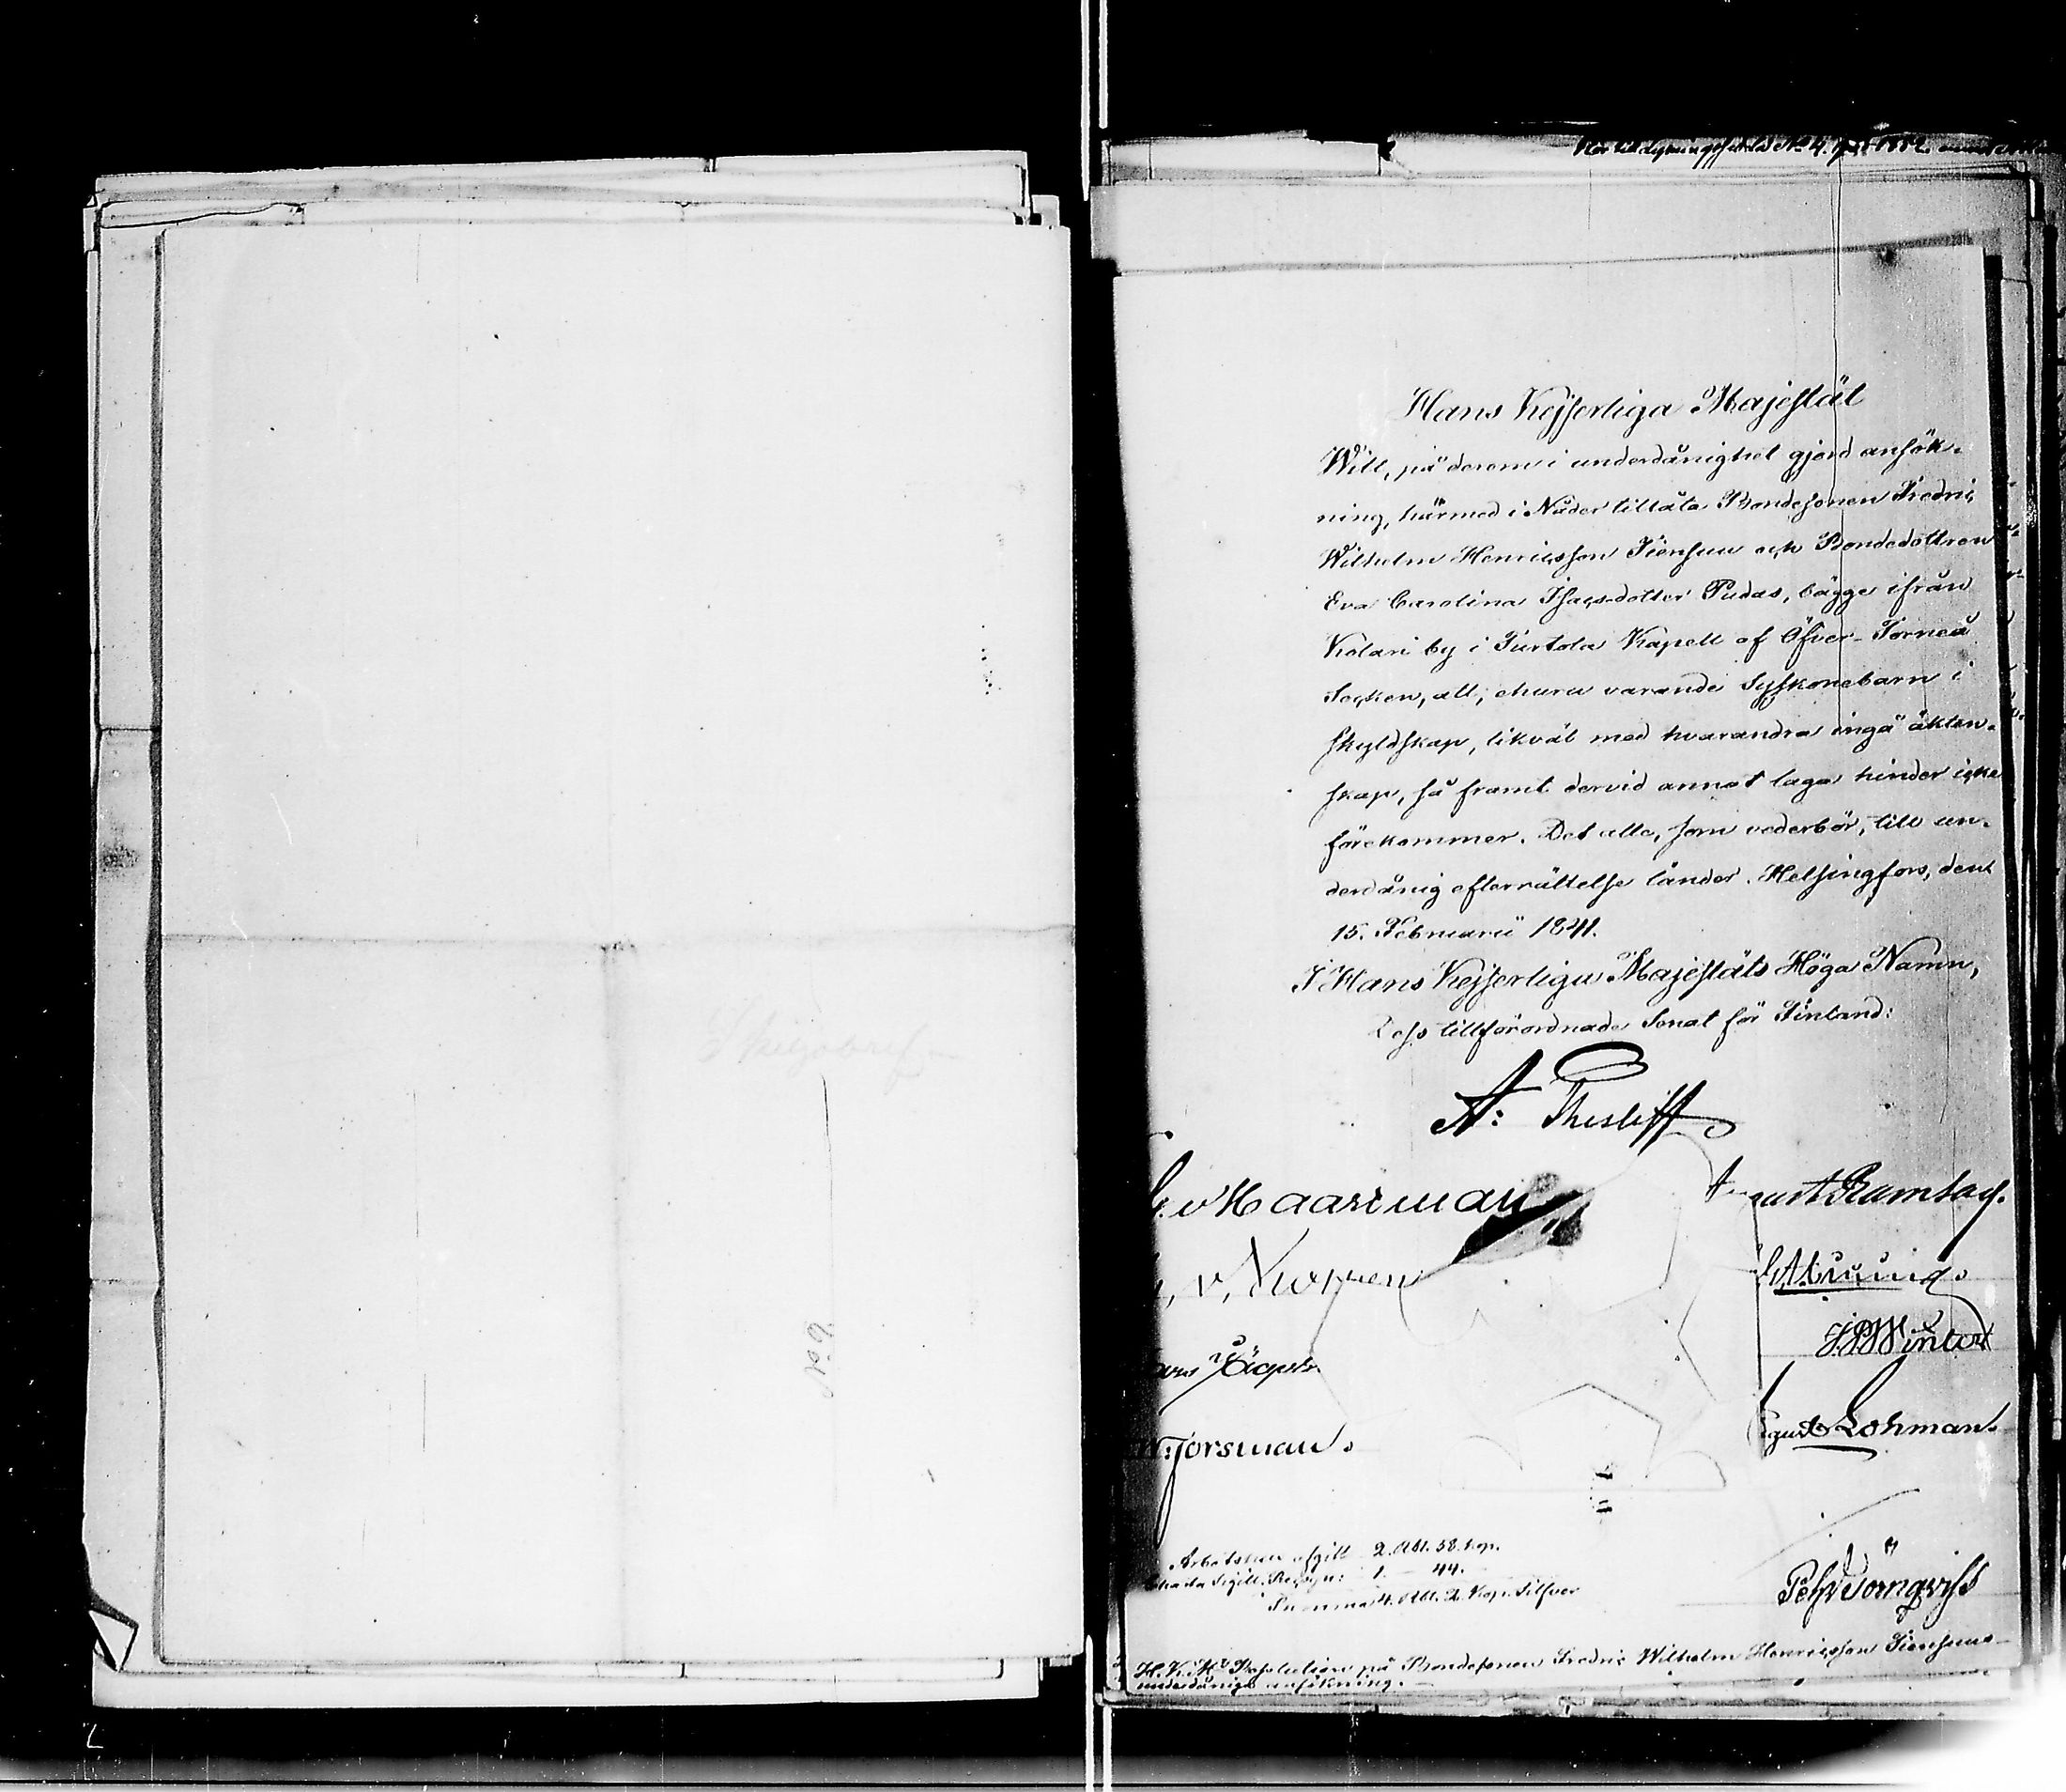 Skiljobref
No 9.
Hans Kejserliga Majestät
Will, på derom i underdånighet gjord ansök-
ning, härmed i Nåder tillåta Bondesonen Fredric
Wilhelm Henricsson Tiensuu och Bondedottren
Eva Carolina Isacs-dotter Pudas, bägge ifrån
Kolari by i Turtola Kapell af Öfver-Torneå
Socken, att, ehuru varande Syskonebarn i
skyldskap, likväl med hvarandra ingå äkten-
skap, så framt dervid annat laga hinder icke
förekommer. Det alle, som vederbör, till un-
derdånig efterrättelse länder. Helsingfors, den
15. Februarii 1841.
I Hans Kejserliga Majestäts Höga Namn,
Dess tillförordnade Senat för Finland:
A: Thesleff
v Haartman
August Ramsay.
v,
J.P. Winter
August Lohman.
W: Forsman.
Arbetskarl afgift 2. Rbl. 58. kop.
Charta Sigill. Recogn: 1. — 44.
Summa 4. Rbl. 2. Kop. Silfver
Pehr Törnqvist
H.K.M:s Resolution på Bondesonen Fredric Wilhelm Henricsson Tiensuus
underdåniga ansökning.